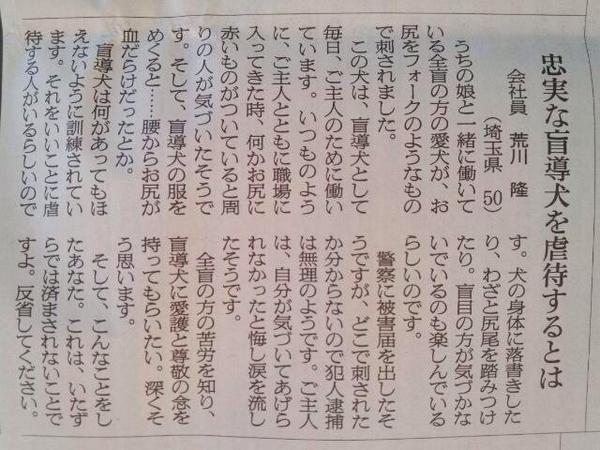 忠実な盲導犬を虐待するとは
会社員　荒川　隆
（埼玉県　50）
うちの娘と一緒に働いて
いる全盲の方の愛犬が、お
尻をフォークのようなもの
で刺されました。
この犬は、盲導犬として
毎日、ご主人のために働い
ています。いつものよう
に、ご主人とともに職場に
入ってきた時、何かお尻に
赤いものがついていると周
りの人が気づいたそうで
す。そして、盲導犬の服を
めくると……腰からお尻が
血だらけだったとか。
盲導犬は何があってもほ
えないように訓練されてい
ます。それをいいことに虐
待する人がいるらしいので
す。犬の身体に落書きした
り、わざと尻尾を踏みつけ
たり。盲目の方が気づかな
いでいるのも楽しんでいる
らしいのです。
警察に被害届を出したそ
うですが、どこで刺された
か分からないので犯人逮捕
は無理のようです。ご主人
は、自分が気づいてあげら
れなかったと悔し涙を流し
たそうです。
全盲の方の苦労を知り、
盲導犬に愛護と尊敬の念を
持ってもらいたい。深くそ
う思います。
そして、こんなことをし
たあなた。これは、いたず
らでは済まされないことで
すよ。反省してください。